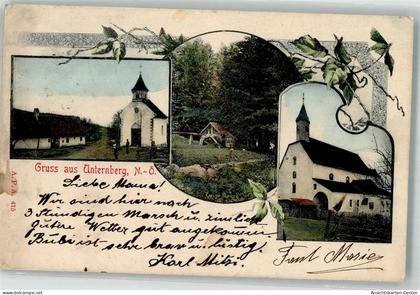 Gruss aus Unternberg, N.-Ö.
A.F.A. 415
Liebe Mama!
Wir sind hier nach
3 stündigen Marsch u. ziemlich
gutere Wetter gut angekommen.
Bubi ist sehr brav u. lustig!
Karl Mitzi.
Marie
Ansichtskarten-Center